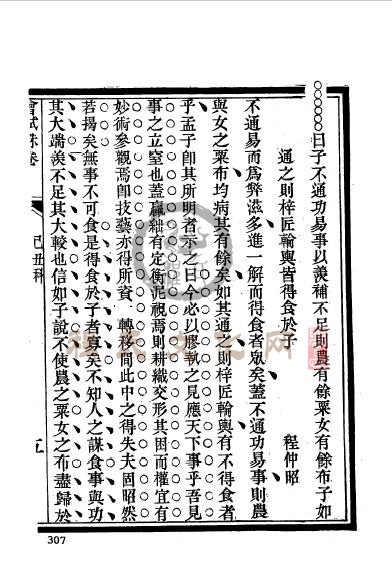 曰子不通功易事以羨補不足則農有餘粟女有餘布子如
通之則梓匠輪輿皆得食於子
程仲昭
不通易而爲弊滋多進一解而得食者眾矣蓋不通功易事則農
與女之粟布均病其有餘矣如其通之則梓匠輪輿有不得食者
乎孟子卽其所明者示之曰今必以膠執之見應天下事乎吾見
事之立窒也蓋贏絀有定衡泥視焉則耕織交形其困而權宜有
妙術參觀焉卽技藝亦得所資一轉移間此中之得失夫固昭然
若揭矣無事不可食是得食於子者寡矣不知人之謀食事與功
其大端羨不足其大較也信如子說不使農之粟女之布盡歸於
會試硃卷
己丑科
五
307